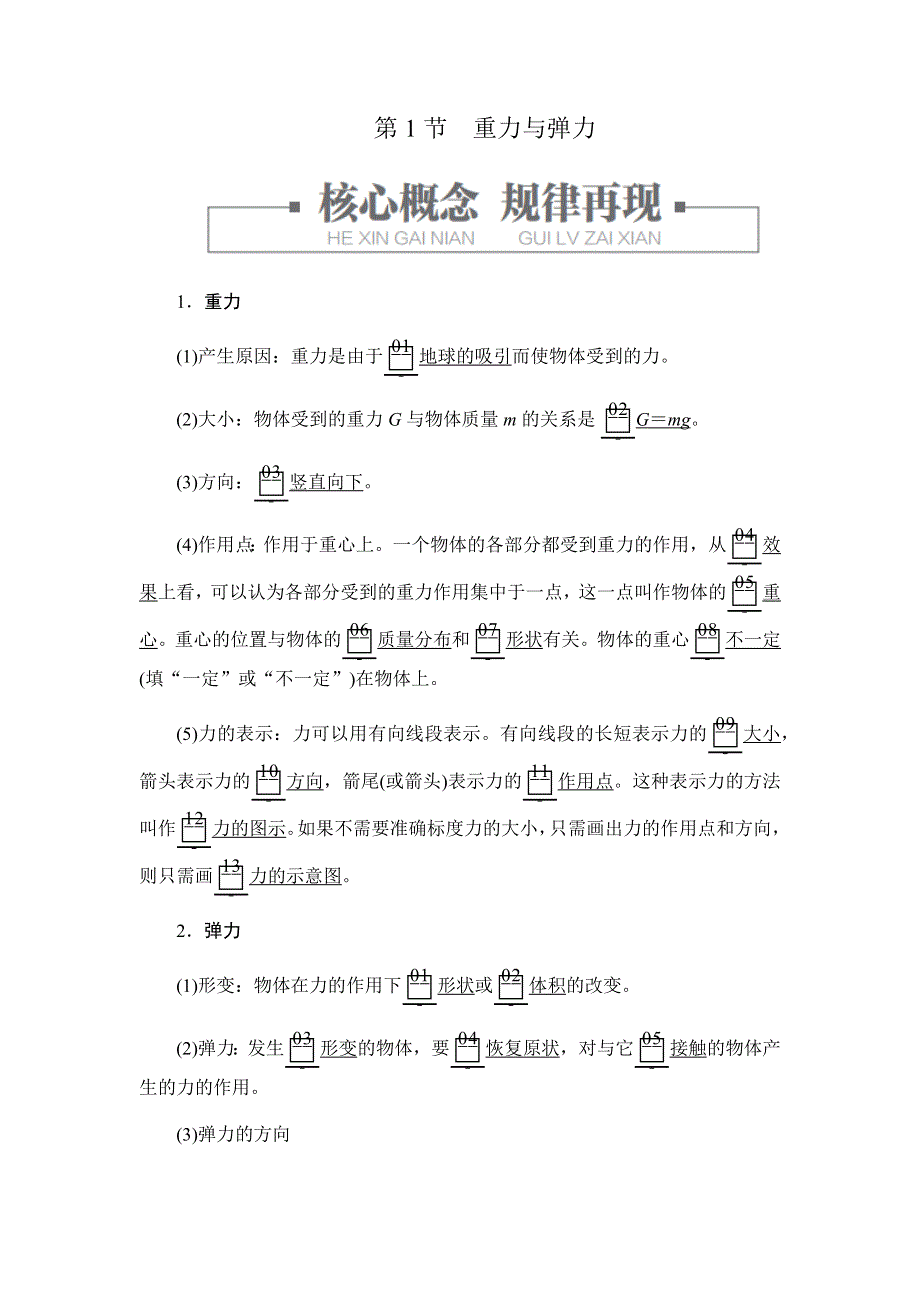 第 1 节　重力与弹力
核心概念 规律再现
HE XIN GAI NIAN GUI LV ZAI XIAN
1．重力
(1)产生原因：重力是由于01地球的吸引而使物体受到的力。
(2)大小：物体受到的重力 G 与物体质量 m 的关系是 02G＝mg。
(3)方向：03竖直向下。
(4)作用点：作用于重心上。一个物体的各部分都受到重力的作用，从04效
果上看，可以认为各部分受到的重力作用集中于一点，这一点叫作物体的05重
心。重心的位置与物体的06质量分布和07形状有关。物体的重心08不一定
(填“一定”或“不一定”)在物体上。
(5)力的表示：力可以用有向线段表示。有向线段的长短表示力的09大小，
箭头表示力的10方向，箭尾(或箭头)表示力的11作用点。这种表示力的方法
叫作12力的图示。如果不需要准确标度力的大小，只需画出力的作用点和方向，
则只需画13力的示意图。
2．弹力
(1)形变：物体在力的作用下01形状或02体积的改变。
(2)弹力：发生03形变的物体，要04恢复原状，对与它05接触的物体产
生的力的作用。
(3)弹力的方向